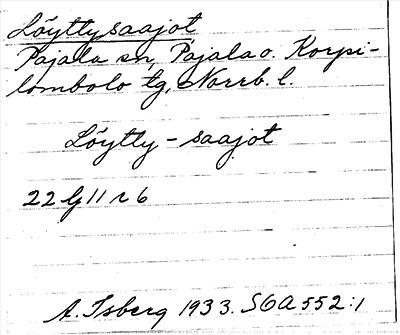 Löyttysaajot
Pajala sn, Pajala o. Korpi-
lombolo tg, Norrb. l.
Löytty-saajot
22 G 11 r 6
A. Isberg 1933. SOA 552:1